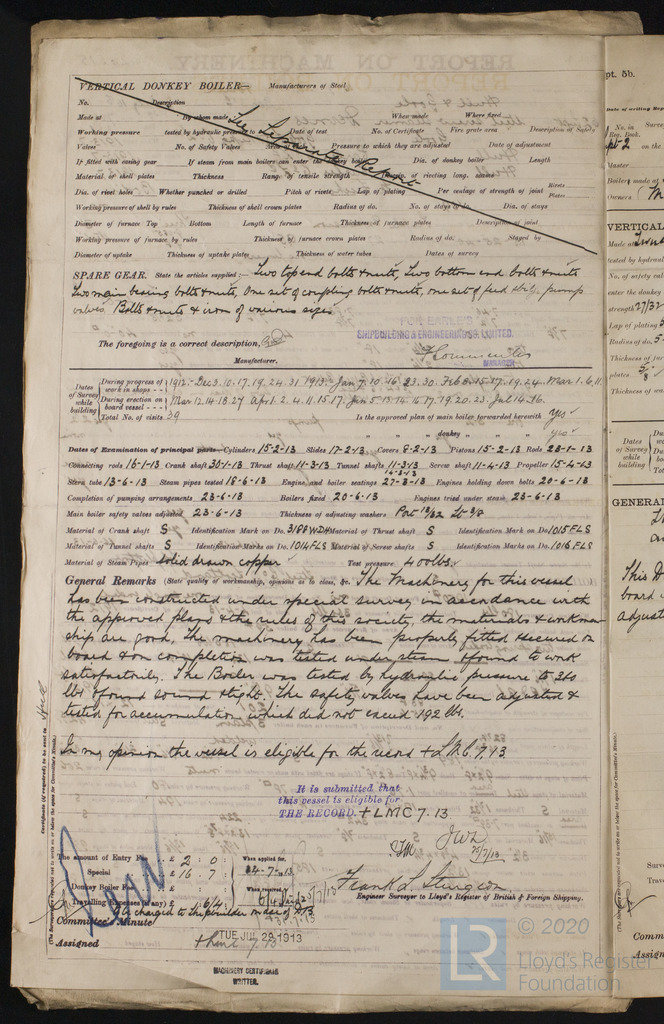 VERTICAL DONKEY BOILER— Manufacturers of Steel
No. Description
Made at By whom made When made Where fixed
Working pressure tested by hydraulic pressure to Date of test No. of Certificate Fire grate area Description of Safety
Valves No. of Safety Valves Area of Pressure to which they are adjusted Date of adjustment
See Separate Report
If fitted with easing gear If steam from main boilers can enter the donkey boiler Dia. of donkey boiler Length
Material of shell plates Thickness Range of tensile strength Descrip. of riveting long. seams
Dia. of rivet holes Whether punched or drilled Pitch of rivets Lap of plating Per centage of strength of joint Rivets Plates
Working pressure of shell by rules Thickness of shell crown plates Radius of do. No. of stays to do. Dia. of stays
Diameter of furnace Top Bottom Length of furnace Thickness of furnace plates Description of joint
Working pressure of furnace by rules Thickness of furnace crown plates Radius of do. Stayed by
Diameter of uptake Thickness of uptake plates Thickness of water tubes Dates of survey
SPARE GEAR. State the articles supplied:— Two top end bolts & nuts, Two bottom end bolts & nuts
Two main bearing bolts & nuts, One set of coupling bolts & nuts, one set of feed & bilge pump
valves, Bolts & nuts & iron of various sizes
The foregoing is a correct description,
SHIPBUILDING & ENGINEERING Co. LIMITED.
Manufacturer.
MANAGER
Dates of Survey while building
During progress of work in shops - - 1912. Dec 3. 10. 17. 19. 24. 31. 1913. Jan 7. 10. 16. 23. 30. Feb 8. 15. 17. 19. 24. Mar 1. 6. 11.
During erection on board vessel - - - Mar 12. 14. 18. 27. Apr 1. 2. 4. 11. 15. 17. Jun 5. 13. 14. 16. 17. 19. 20. 23. Jul 14. 16.
Total No. of visits 39 Is the approved plan of main boiler forwarded herewith yes
" " " donkey " " " yes
Dates of Examination of principal parts—Cylinders 15-2-13 Slides 17-2-13 Covers 8-2-13 Pistons 15-2-13 Rods 23-1-13
Connecting rods 16-1-13 Crank shaft 30-1-13 Thrust shaft 11-3-13 Tunnel shafts 11-3-13 Screw shaft 11-4-13 Propeller 15-4-13
Stern tube 13-6-13 Steam pipes tested 16-6-13 Engine and boiler seatings 27-3-13 Engines holding down bolts 20-6-13
Completion of pumping arrangements 23-6-13 Boilers fixed 20-6-13 Engines tried under steam 23-6-13
Main boiler safety valves adjusted 23-6-13 Thickness of adjusting washers Port 13/32 St 3/8
Material of Crank shaft S Identification Mark on Do. 3188WDH Material of Thrust shaft S Identification Mark on Do. 1015FLS
Material of Tunnel shafts S Identification Marks on Do. 1014FLS Material of Screw shafts S Identification Marks on Do. 1016FLS
Material of Steam Pipes Solid drawn copper Test pressure 400 lbs.
General Remarks (State quality of workmanship, opinions as to class, &c. The Machinery for this vessel
has been constructed under special survey in accordance with
the approved plans & the rules of this society, the materials & workman
ship are good, the machinery has been properly fitted & secured on
board & on completion was tested under steam & found to work
satisfactorily. The Boiler was tested by hydraulic pressure to 360
lbs & found sound & tight. The safety valves have been adjusted &
tested for accumulation which did not exceed 192 lbs.
In my opinion the vessel is eligible for the record + L.M.C. 7.13
It is submitted that
this vessel is eligible for
THE RECORD. + LMC 7. 13
The amount of Entry Fee £ 2 : 0 : When applied for,
Special £ 16 : 7 : 24-7-13
Donkey Boiler Fee £ When received,
Travelling Expenses (if any) £
Frank L. Sturgeon
Engineer Surveyor to Lloyd's Register of British & Foreign Shipping.
Committee's Minute
TUE JUL 29 1913
Assigned + Lmc 7.13
MACHINERY CERTIFICATE
WRITTEN.
Certificate (if required) to be sent to Hull
pt. 5b.
Date of writing Rep
No. in Reg. Book.
Master
Boiler made at
Owners
VERTICAL
Made at
tested by hydraulic
No. of safety valves
enter the donkey
strength 27/32
Lap of plating
Radius of do.
Thickness of fur
plates 5/8
Thickness of wa
Dates of Survey while building
GENERAL
This
board
adjust
Surve
Trave
Comm
Assign
© 2020
LR
Lloyd's Register
Foundation